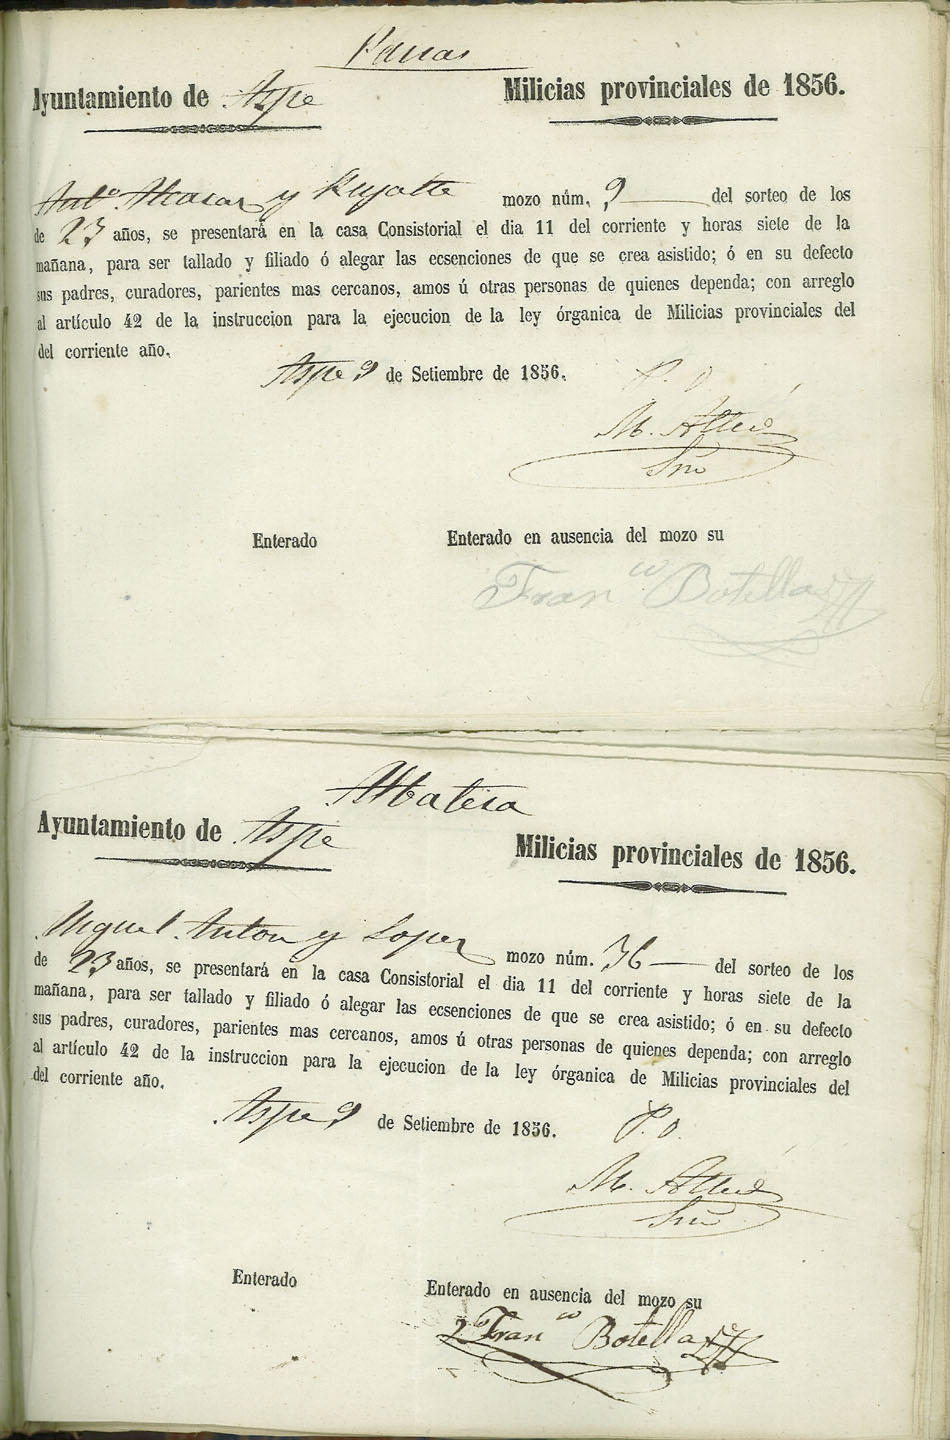 Ayuntamiento de Aspe
Milicias provinciales de 1856.
Antº Alcaras y mozo núm. 9 del sorteo de los
de 23 años, se presentará en la casa Consistorial el dia 11 del corriente y horas siete de la
mañana, para ser tallado y filiado ó alegar las ecsenciones de que se crea asistido; ó en su defecto
sus padres, curadores, parientes mas cercanos, amos ú otras personas de quienes dependa; con arreglo
al artículo 42 de la instruccion para la ejecucion de la ley órganica de Milicias provinciales del
del corriente año.
Aspe 9 de Setiembre de 1856.
P. O.
M.
Srio
Enterado
Enterado en ausencia del mozo su
Franco Botella
Albatera
Ayuntamiento de Aspe
Milicias provinciales de 1856.
Miguel Anton y Lopez mozo núm. 36 del sorteo de los
de 23 años, se presentará en la casa Consistorial el dia 11 del corriente y horas siete de la
mañana, para ser tallado y filiado ó alegar las ecsenciones de que se crea asistido; ó en su defecto
sus padres, curadores, parientes mas cercanos, amos ú otras personas de quienes dependa; con arreglo
al artículo 42 de la instruccion para la ejecucion de la ley órganica de Milicias provinciales del
del corriente año.
Aspe 9 de Setiembre de 1856.
P. O.
M.
Srio
Enterado
Enterado en ausencia del mozo su
Franco Botella